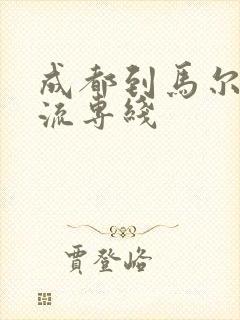 成都到馬尔
流専綫
賈登峪